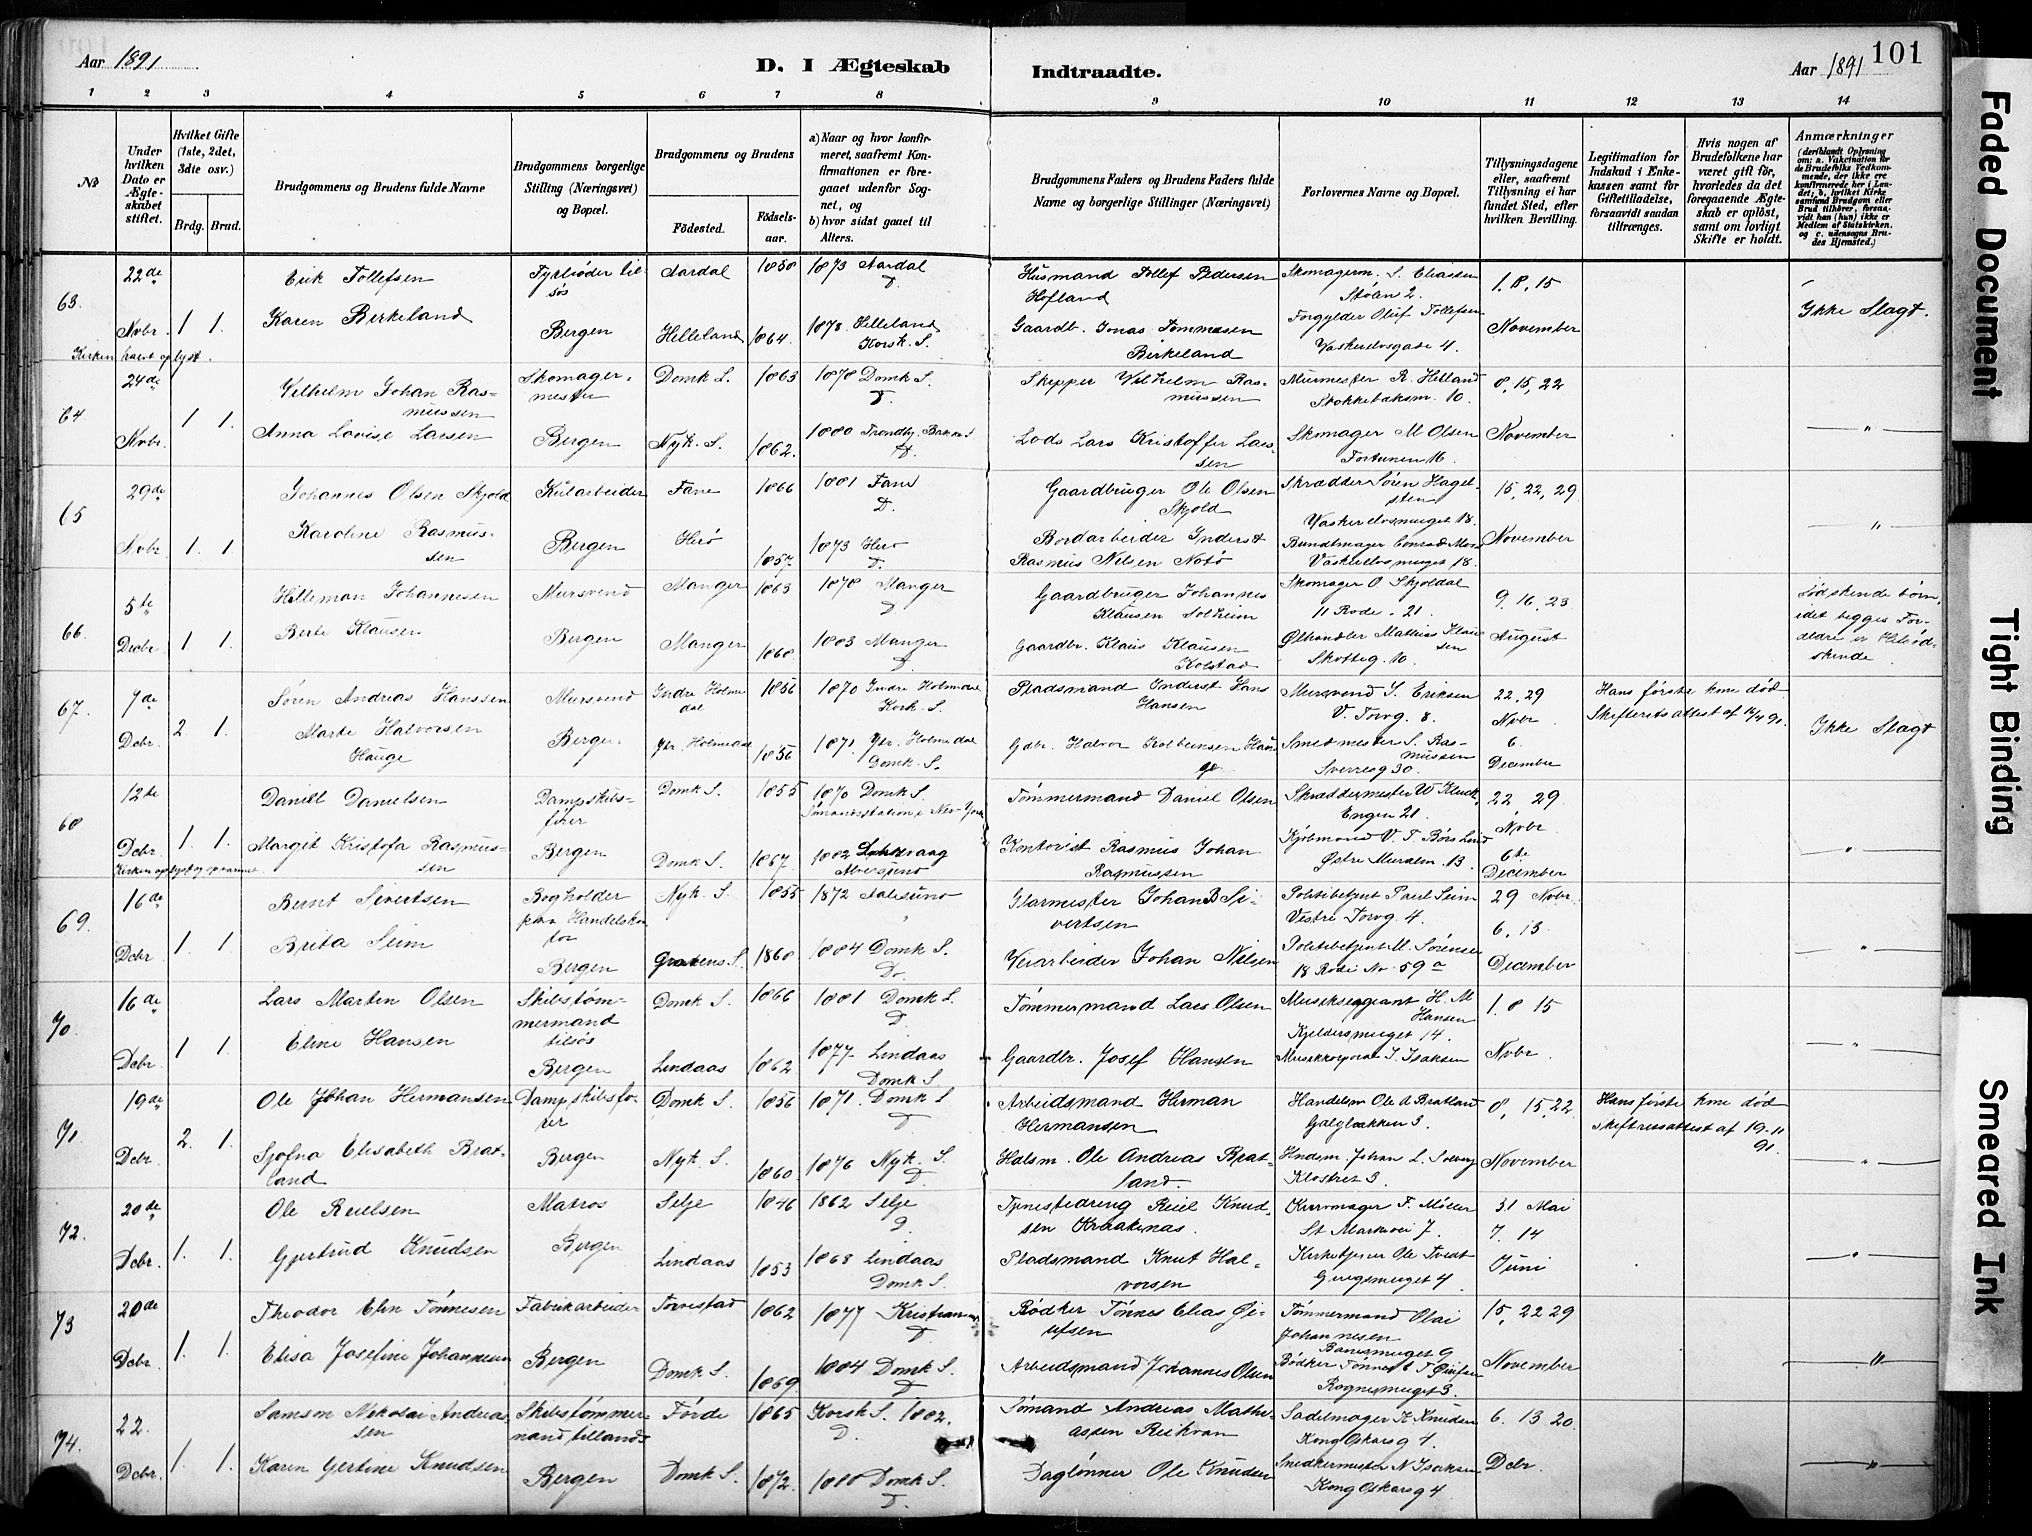 Aar 1891
D. I Ægteskab
Indtraadte.
Aar 1891
101
1 2 3 4 5 6 7 8 9 10 11 12 13 14
No
Under hvilken Dato er Ægteskabet stiftet.
Hvilket Gifte (1ste, 2det, 3die osv.)
Brdg. Brud.
Brudgommens og Brudens fulde Navne
Brudgommens borgerlige Stilling (Næringsvei) og Bopæl.
Brudgommens og Brudens
Födested.
Födselsaar.
a) Naar og hvor konfirmeret, saafremt Konfirmationen er foregaaet udenfor Sognet, og
b) hvor sidst gaaet til Alters.
Brudgommens Faders og Brudens Faders fulde Navne og borgerlige Stillinger (Næringsvei)
Forlovernes Navne og Bopæl.
Tillysningsdagene eller, saafremt Tillysning ei har fundet Sted, efter hvilken Bevilling.
Legitimation for Indskud i Enkekassen samt for Giftetilladelse, forsaavidt saadan tiltrænges.
Hvis nogen af Brudefolkene har været gift før, hvorledes da det foregaaende Ægteskab er opløst, samt om lovligt Skifte er holdt.
Anmærkninger
(deriblandt Oplysning om: a. Vakcination for de Brudefolks Vedkommende, der ikke ere konfirmerede her i Landet; b. hvilket Kirkesamfund Brudgom eller Brud tilhører, forsaavidt han (hun) ikke er Medlem af Statskirken, og c. udensogns Brudes Hjemsted.)
63. 22de Nvbr. 1 1.
Erik Tollefsen
Karen Birkeland
Fyrbøder tilsøs
Bergen
Aardal 1858 1873 Aardal D.
Helleland 1864. 1878 Helleland Korsk. S.
Husmand Tollef Pedersen Hofland
Gaardb. Jonas Tommasen Birkeland
Skomagerm. S. Eliassen Stølen 2.
Forgylder Oluf Tollefsen Vaskerelvsgade 4.
1. 8, 15 November
Ikke Slagt.
Kirken halvt oplyst.
64 24de Nvbr. 1 1.
Vilhelm Johan Rasmussen
Anna Lovise Larsen
Skomagermester
Bergen
Domk S. 1863 1878 Domk S. D.
Nyk. S. 1862. 1880 Trondhj. Bakke S D.
Skipper Vilhelm Rasmussen
Lods Lars Kristoffer Larssen
Murmester R. Hetland
Skomager M Olsen Fortunen 16.
8, 15, 22 November
"
65 29de Nvbr. 1. 1
Johannes Olsen Skjold
Karoline Rasmussen
Kularbeider
Bergen
Fane 1866 1881 Fane D.
Herø 1857. 1873 Herø D.
Gaardbruger Ole Olsen Skjold
Bordarbeider Inderst Rasmus Nilsen Notø
Skrædder Søren Hagelsten Vaskerelvsmuget 18.
Bundtmager Conrad Vaskerelvsmuget 18.
15, 22, 29 November
"
66. 5te Decbr 1 1.
Hilleman Johannesen
Berte Klausen
Mursvend
Bergen
Manger 1863 1878 Manger D
Manger 1868 1883 Manger D.
Gaardbruger Johannes Klausen Solheim
Gaardbr. Klaus Klausen Kolstad
Skomager O Skjoldal 11 Rode . 21.
Ølhandler Mathias Klausen Skotteg. 10.
9. 16. 23 August
Sødskendebørn, idet begges Forældre er Helsødskende.
67. 7de Dcbr. 2 1.
Søren Andreas Hanssen
Marte Halvorsen Hauge
Mursvend
Bergen
Indre Holmedal 1856 1870 Indre Holmedal Korsk. S.
Ytr. Holmedal 1856 1871. Ytr. Holmedal Domk. S.
Pladsmand Inderst Hans Hansen
Gdbr. Halvor Kolbeinsen Hauge
Mursvend S. Eriksen V. Torvg. 8.
Smedmester S. Rasmussen Sverresg 30.
22. 29 Nvbr 6. December
Hans første kone død Skifterets attest af 12/4 91.
Ikke Slagt
68 12te Dcbr. 1. 1.
Daniel Danielsen
Margit Kristofa Rasmussen
Dampskibsfører
Bergen
Domk S. 1855 1870 Domk S. Sømandsstation i New-York
Domk S. 1867. 1882 Alversund
Tømmermand Daniel Olsen
Kontorist Rasmus Johan Rasmussen
Skræddermester W Engen 21.
Kjøbmand V. T. Børs Lind Østre Muralm. 13.
22 29 Nvbr. 6te December
"
Kirken oplyst og opvarmet.
69. 16de Dcbr 1 1
Bernt Sivertsen
Brita Seim
Bogholder paa Handelskontor
Bergen
Nyk. S. 1855 1872 Aalesund "
Gravens S. 1860 1884 Domk S. Do.
Glarmester Johan B Sivertsen
Veiarbeider Johan Nilsen
Politibetjent Paul Seim Vestre Torvg. 4.
Politibetjent M. Sørensen 18 Rode No 59 a
29 Nvbr. 6. 13 December
"
70 16de Dcbr. 1 1.
Lars Martin Olsen
Eline Hansen
Skibstømmermand tilsøs
Bergen
Domk S. 1866 1881 Domk S. D.
Lindaas 1862 1877. Lindaas Domk S.
Tømmermand Lars Olsen
Gaardbr. Josef Hansen
Musiksergeant H. M Hansen Kjeldersmuget 14.
Musikkorporal I. Isaksen
1. 8 15 Nvbr.
"
71 19de Dcbr. 2. 1.
Ole Johan Hermansen
Sjofna Elisabeth Bratland
Dampskibsfører
Bergen
Domk S. 1856 1871. Domk S D
Nyk. S. 1860. 1876 Nyk. S. D.
Arbeidsmand Herman Hermansen
Halsm. Ole Andreas Bratland.
Handelsm Ole A Bratland Galgbakken 3.
Hndsm. Johan L. Solberg Klostret 3.
8, 15, 22 November
Hans første kone død skifteretsattest af 19-11 91.
"
72. 20de Dcbr. 1. 1.
Ole Reielsen
Gjertrud Knudsen
Matros
Bergen
Selje 1846 1862 Selje D.
Lindaas 1853 1868 Lindaas Domk S.
Tjenestedreng Reiel Knudsen Kraakenas.
Pladsmand Knut Halvorsen
F. Møller St Markvei 7.
Kirketjener Ole Tvedt Gungemuget 4
31 Mai 7. 14 Juni
"
73 20de Dcbr. 1. 1.
Theodor Elin Tønnesen
Elisa Josefine Johannesen
Fabrikarbeider
Bergen
Torvestad 1862 1877 D
Domk S. 1869 1884 Domk S. D
Bødker Tønnes Elias
Arbeidsmand Johannes Olsen
Tømmermand Olai Johannesen
Bødker Tønnes T Rognesmuget 3.
15, 22 29 November
"
74. 22. Dcbr. 1. 1.
Samson Nikolai Andreassen
Karen Gertine Knudsen
Skibstømmermand tillands
Bergen
Førde 1865 Korsk S. 1882. D.
Domk S. 1872. 1888 Domk S. D.
Sømand Andreas Mathiassen
Dagløner Ole Knudsen
Sadelmager K Knudsen Kong Oskarsg 4.
Snedkermester N Isaksen Kong Oskarsg 4
6. 13 20 Dcbr.
"
Faded Document
Tight Binding
Smeared Ink